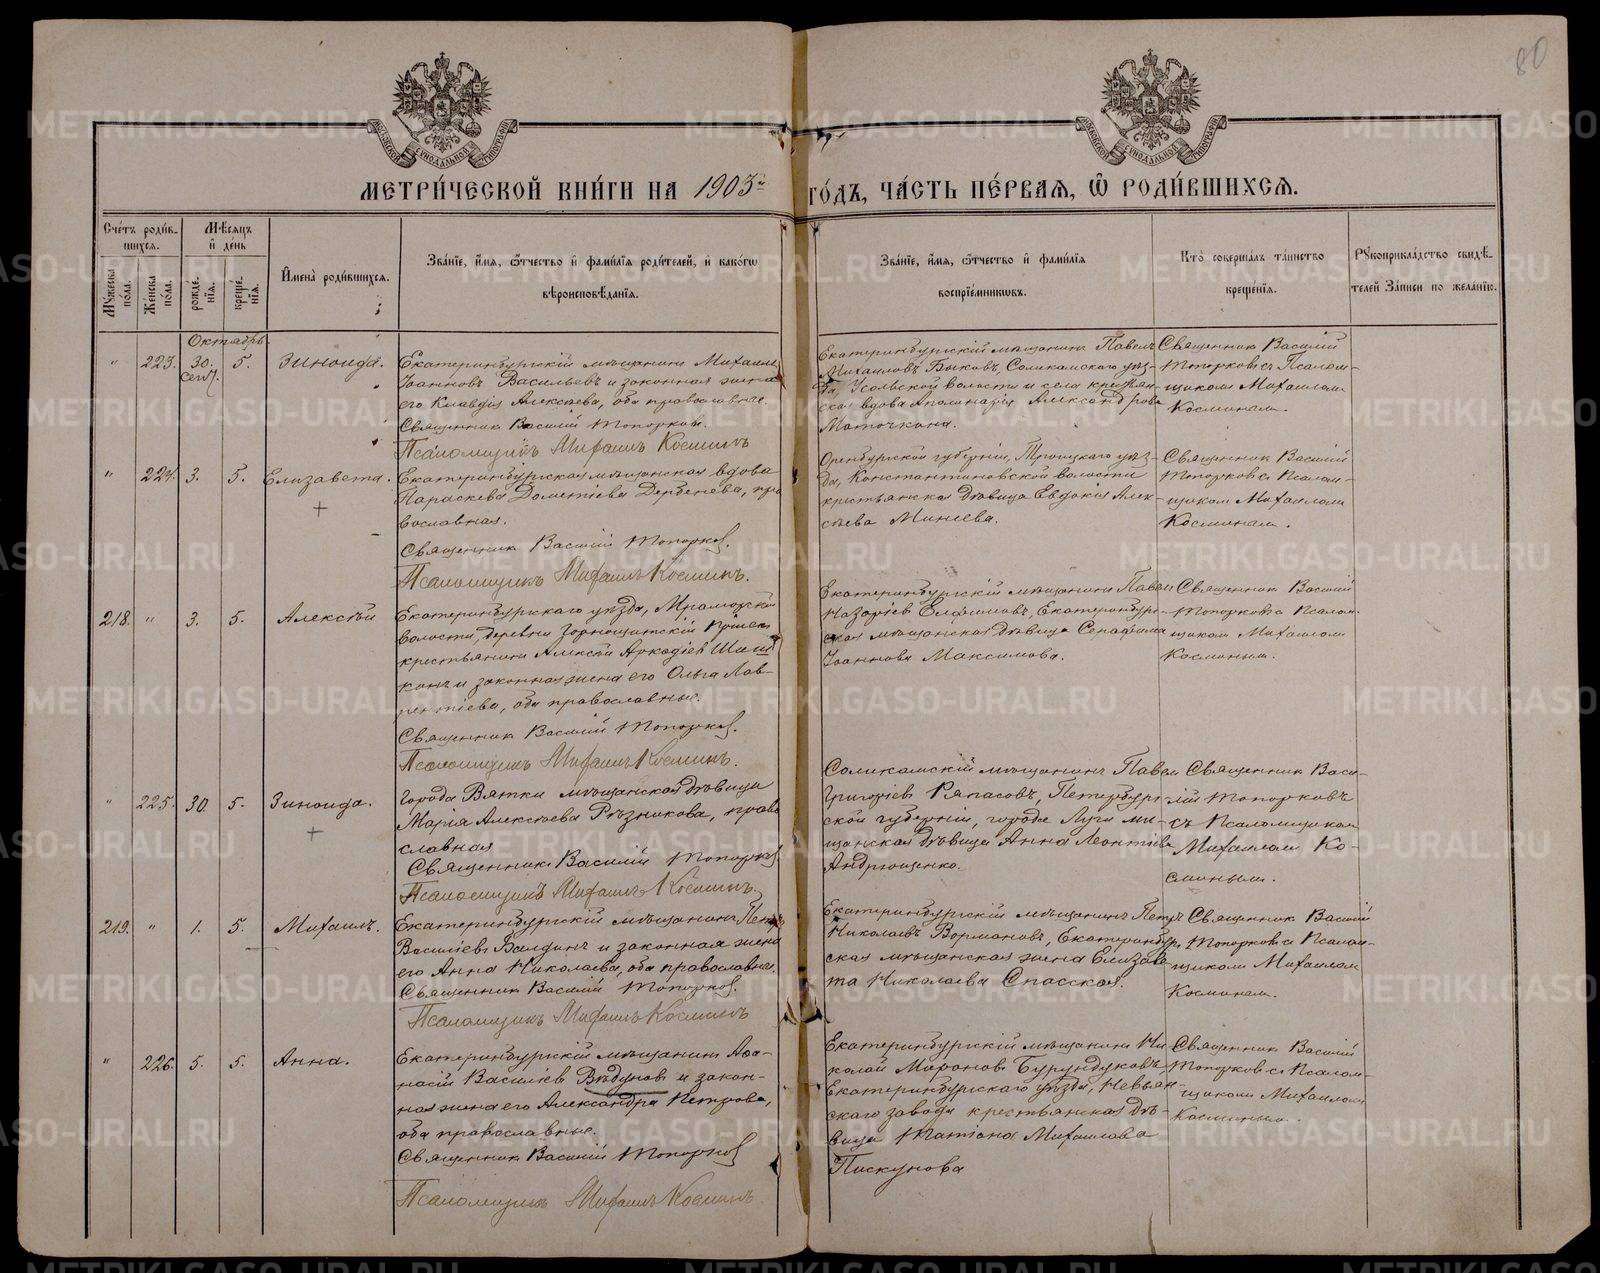 80
МОСКОВСКОЙ СѴНОДАЛЬНОЙ ТИПОГРАФІИ
МОСКОВСКОЙ СѴНОДАЛЬНОЙ ТИПОГРАФІИ
МЕТРИ́ЧЕСКОЙ КНИ́ГИ НА 1903й ГО́ДЪ, ЧА́СТЬ ПЕ́РВАЯ, Ѽ РОДИ́ВШИХСЯ.
Счётъ роди́в-
шихся.
Мѣ́сяцъ
и҆ де́нь
Мꙋ́жеска по́ла.
Же́нска по́ла.
рожде́-нїя.
креще́-нїя.
И҆мена̀ роди́вшихся.
Зва́нїе, и҆́мя, ѻ҆́тчество и҆ фами́лїя роди́телей, и҆ како́гѡ
вѣроисповѣ́данїя.
Зва́нїе, и҆́мя, ѻ҆́тчество и҆ фами́лїя
воспрїе́мникѡвъ.
Кто̀ соверша́лъ та́инство
креще́нїя.
Рꙋкоприкла́дство свидѣ́-
телей За́писи по жела́нїю.
Октябрь.
" 223. 30. Сент. 5. Зиноида.
Екатеринбургскій мѣщанинъ Михаилъ
Іоанновъ Васильевъ и законная жена
его Клавдія Алексѣева, оба православные.
Священникъ Василій Топорковъ.
Псаломщикъ Михаилъ Косминъ
Екатеринбургскій мѣщанинъ Павелъ
Михаиловъ Быковъ, Соликамскаго уѣз-
да, Усольской волости и села крестьян-
ская вдова Аполинарія Александрова
Маточкина.
Священник Василій
Топорковъ с Псалом-
щиком Михаилом
Косминым.
" 224. 3. 5. Елизавета.
Екатеринбургская мѣщанская вдова
Параскева Дометіева Дербенева, пра
вославная.
Священник Василій Топорков.
Псаломщикъ Михаилъ Косминъ.
Оренбургской губерніи, Троицкаго уѣз-
да, Константиновской волости
крестьянская дѣвица Евдокія Алек-
сѣева Минеева.
Священник Василій
Топорков с Псалом-
щиком Михаилом
Косминым.
218. " 3. 5. Алексѣй
Екатеринбургскаго уѣзда, Мраморской
волости, деревни Горнощитскій Пріискъ
крестьянинъ Алексѣй Аркадіевъ
и законная жена его Ольга Лав-
рентіева, оба православные.
Священник Василій Топорков.
Псаломщикъ Михаилъ Косминъ.
Екатеринбургскій мѣщанинъ Павел
Назаріев Елфимовъ, Екатеринбург-
ская мѣщанская дѣвица Серафима
Іоаннова Максимова.
Священник Василій
Топорков с Псалом-
щиком Михаилом
Косминым.
" 225. 30. 5. Зиноида.
Города Вятки мѣщанская дѣвица
Марія Алексѣева Рѣзникова, право
славная
Священник Василій Топорков
Псаломщикъ Михаилъ Косминъ
Соликамскій мѣщанинъ Павел
Григоріев Ряпасовъ, Петербург
ской губерніи, города Луги мѣ-
щанская дѣвица Анна Леонтіева
Андрющенко.
Священник Васи-
лій Топорковъ
съ Псаломщиком
Михаилом Ко-
сминым.
219. " 1. 5. Михаилъ.
Екатеринбургскій мѣщанинъ Петръ
Василіевъ Балдинъ и законная жена
его Анна Николаева, оба православны.
Священник Василій Топорков.
Псаломщикъ Михаилъ Косминъ
Екатеринбургскій мѣщанинъ Петръ
Николаевъ Вормановъ, Екатеринбург
ская мѣщанская жена Елизаве
та Николаева Спасская.
Священник Василій
Топорков с Псалом-
щиком Михаилом
Косминым.
" 226. 5. 5. Анна.
Екатеринбургскій мѣщанинъ Афа-
насій Василіев Вѣдунов и закон-
ная жена его Александра Петрова,
оба православные.
Священник Василій Топорков
Псаломщикъ Михаилъ Косминъ.
Екатеринбургскій мѣщанинъ Ни
колай Миронов Бурундуковъ,
Екатеринбургскаго уѣзда, Невьян-
скаго завода крестьянская дѣ-
вица Татіана Михаилова
Пискунова
Священник Василій
Топорков с Псалом-
щиком Михаилом
Косминым.
METRIKI.GASO-URAL.RU